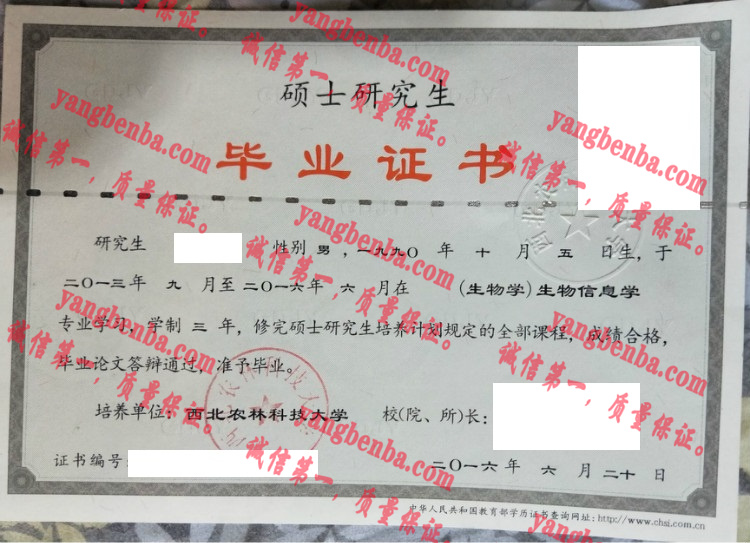 硕士研究生
毕业证书
研究生 性别 男 ，一九九〇 年 十 月 五 日生，于
二〇一三年 九 月至二〇一六年 六 月在 (生物学)生物信息学
专业学习，学制 三 年，修完硕士研究生培养计划规定的全部课程，成绩合格，
毕业论文答辩通过，准予毕业。
培养单位：西北农林科技大学 校(院、所)长：
证书编号：
二〇一六年 六 月 二十 日
中华人民共和国教育部学历证书查询网址：http://www.chsi.com.cn
诚信第一，质量保证。
yangbenba.com
诚信第一，质量保证。
yangbenba.com
诚信第一，质量保证。
yangbenba.com
诚信第一，质量保证。
yangbenba.com
诚信第一，质量保证。
yangbenba.com
诚信第一，质量保证。
yangbenba.com
诚信第一，质量保证。
yangbenba.com
诚信第一，质量保证。
yangbenba.com
诚信第一，质量保证。
yangbenba.com